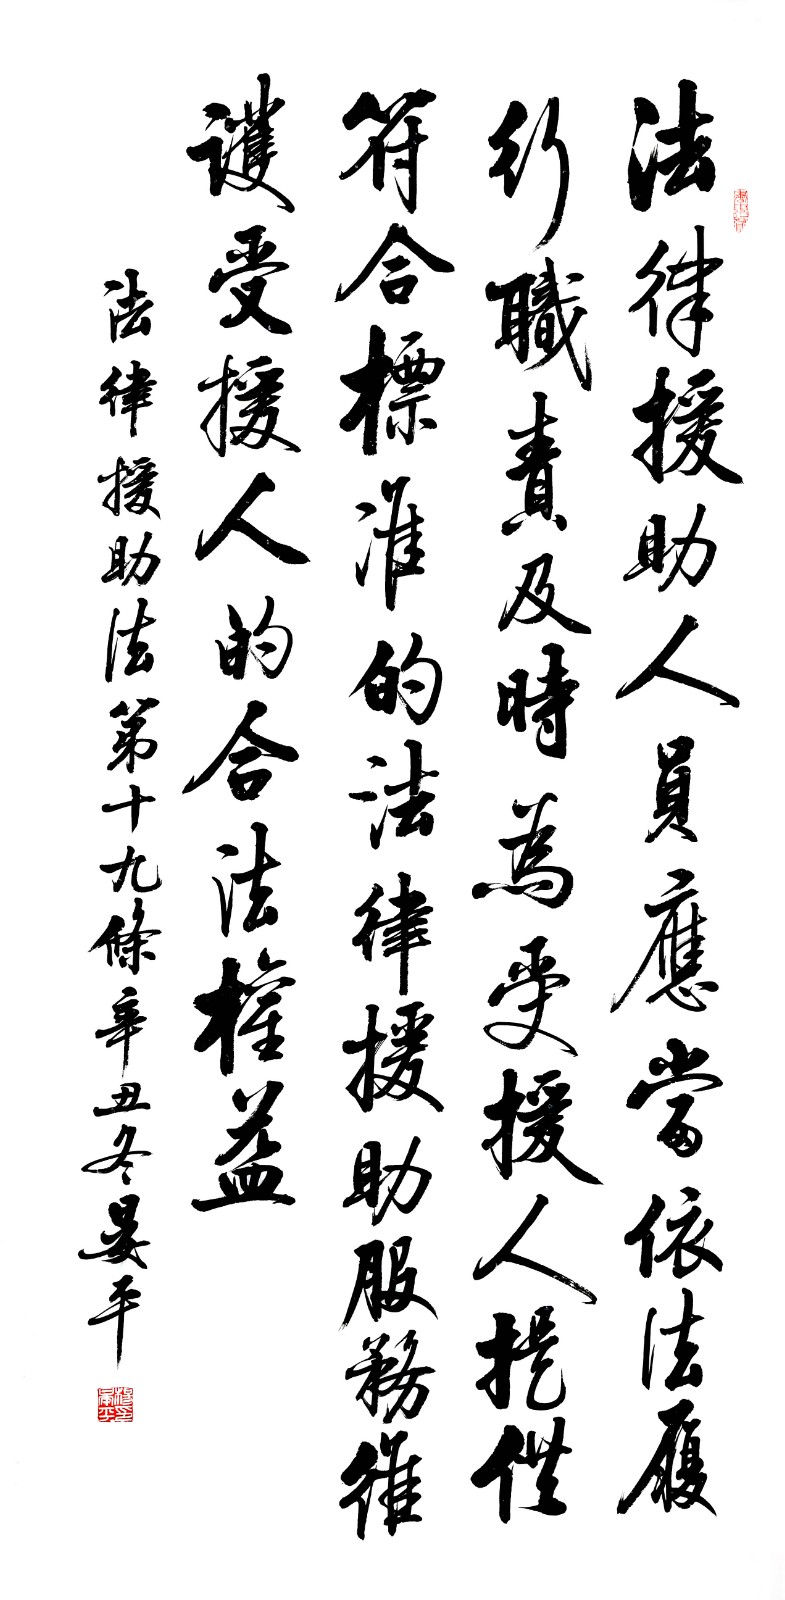 法律援助人員應當依法履
行職責及時為受援人提供
符合標准的法律援助服務維
護受援人的合法權益
法律援助法第十九條辛丑冬晏平